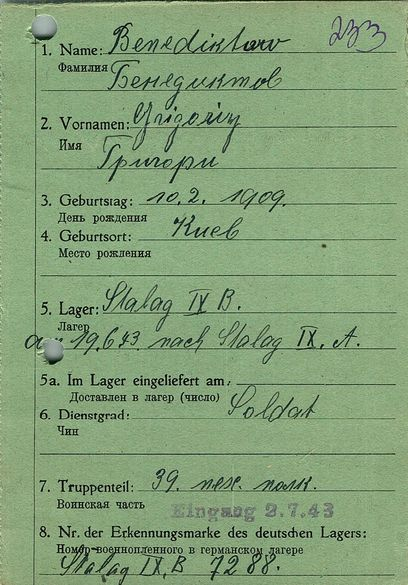 233
1. Name: Benediktow
Фамилия
Бенедиктов
2. Vornamen: Grigoriy
Имя
Григори
3. Geburtstag: 10.2.1909.
День рождения
4. Geburtsort: Киев
Место рождения
5. Lager: Stalag IV B.
Лагер
am 19.6.43 nach Stalag IX. A.
5a. Im Lager eingeliefert am:
Доставлен в лагер (число)
6. Dienstgrad: Soldat
Чин
7. Truppenteil: 39. пех. полк.
Воинская часть
Eingang 2.7.43
8. Nr. der Erkennungsmarke des deutschen Lagers:
Номер военнопленного в германском лагере
Stalag IX. B 7288.